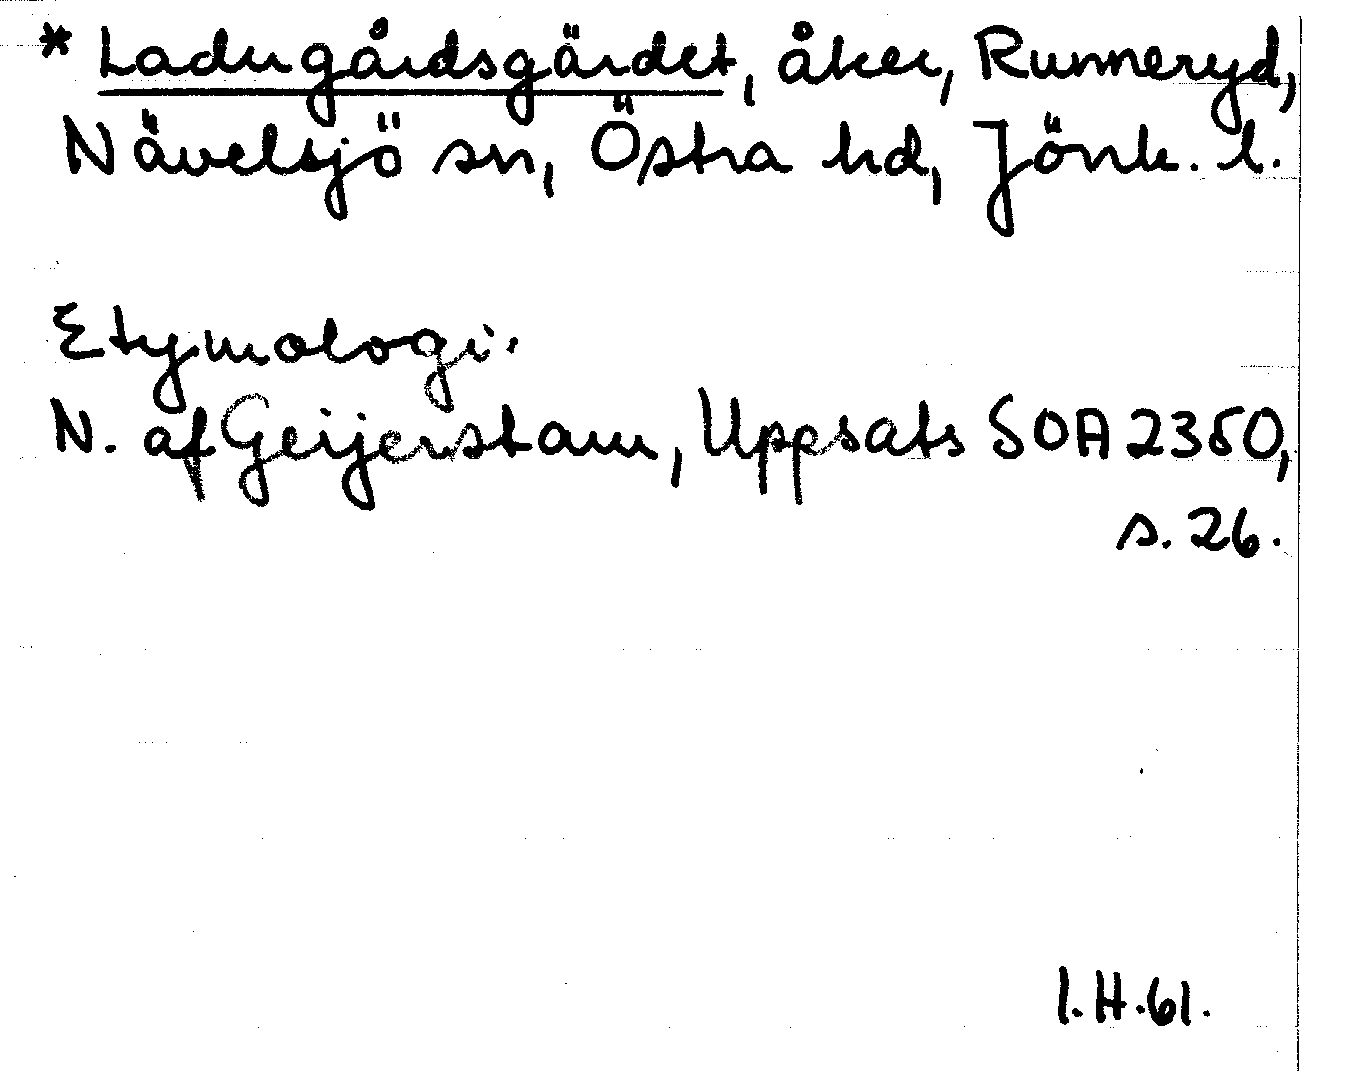 * Ladugårdsgärdet, åker, Runneryd,
Nävelsjö sn, Östra hd, Jönk. l.
Etymologi.
N. af Geijerstam, Uppsats SOA 2350,
s. 26.
I.H.61.